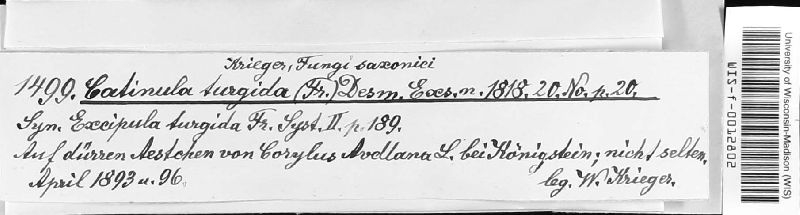 Krieger, Fungi saxonici
1499. Catinula turgida (Fr.) Desm. Exs. n. 1818. 20. No. p. 20.
Syn. Excipula turgida Fr. Syst. II. p. 189.
Auf dürren Aestchen von Corylus Avellana L. bei Königstein; nicht selten.
April 1893 u. 96.
leg. W. Krieger.
University of Wisconsin-Madison (WIS)
WIS-f-0012202